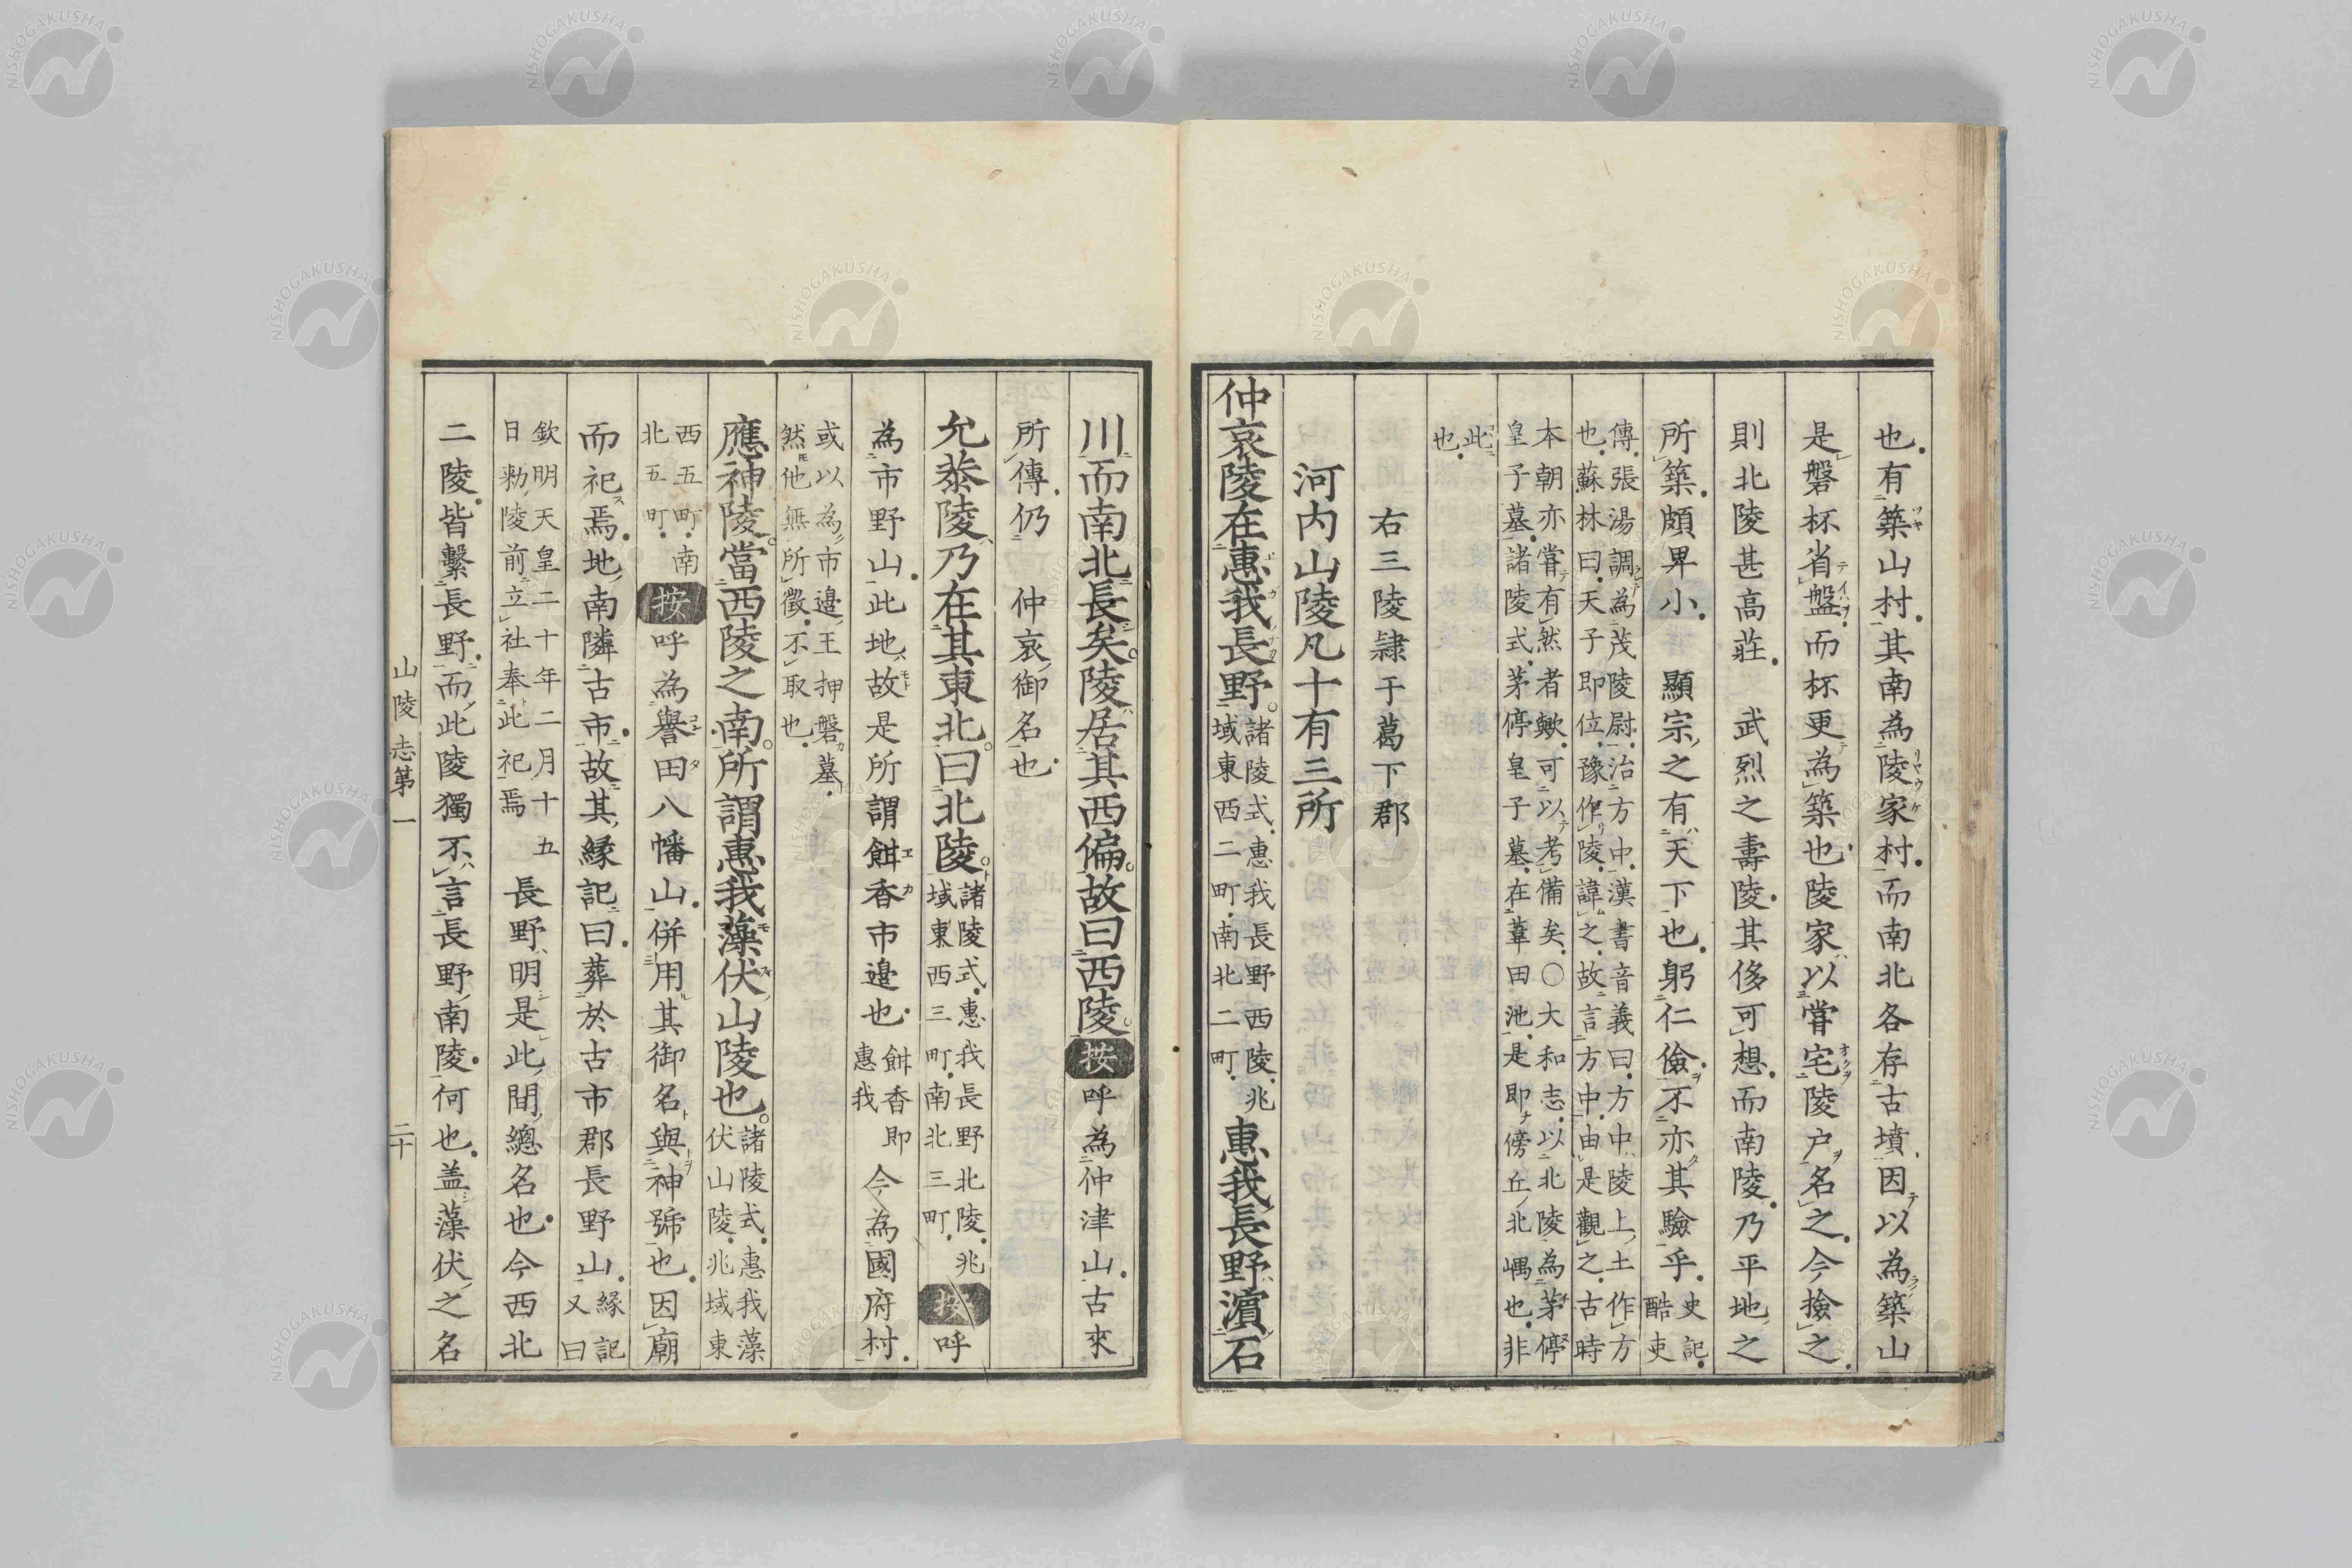 也有築山村其南為陵家村而南北各存古墳因以為築山
是磐杯省盤而杯更為築也陵家以嘗宅陵戸名之今撿之
則北陵甚高莊　武烈之壽陵其侈可想而南陵乃平地之
所築頗卑小　顯宗之有天下也躬仁儉不亦其驗乎史記酷吏
傳張湯調為茂陵尉治方中漢書音義曰方中陵上土作方
也蘇林曰天子即位豫作陵諱之故言方中由是觀之古時
本朝亦嘗有然者歟可以考備矣〇大和志以北陵為茅停
皇子墓諸陵式茅停皇子墓在葦田池是即傍丘北嵎也非
此
也
右三陵隷于葛下郡
河内山陵凡十有三所
仲哀陵在惠我長野諸陵式惠我長野西陵兆域東西二町南北二町惠我長野濵石
川而南北長矣陵居其西偏故曰西陵按呼為仲津山古來
所傳仍　仲哀御名也
允恭陵乃在其東北曰北陵諸陵式惠我長野北陵兆域東西三町南北三町按呼
為市野山此地故是所謂餌香市邉也餌香即惠我今為國府村
或以為市邉王押磐墓
然他無所徴不取也
應神陵當西陵之南所謂惠我藻伏山陵也諸陵式惠我藻伏山陵兆域東
西五町南北五町按呼為譽田八幡山併用其御名與神號也因廟
而祀焉地南隣古市故其縁記曰葬於古市郡長野山縁記又曰
欽明天皇二十年二月十五日勑陵前立社奉此祀焉長野明是此間總名也今西北
二陵皆繫長野而此陵獨不言長野南陵何也盖藻伏之名
山陵志第一　二十
NISHOGAKUSHA